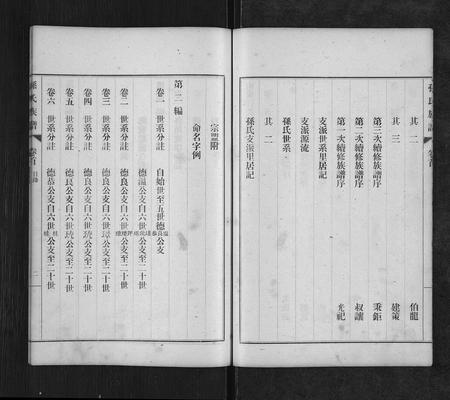 孫氏族譜 卷首
其二 伯龍
其三 建策
第三次續修族譜序 秉鉅
第二次續修族譜序 叔讓
第一次續修族譜序 光祀
支派世系里居記
支派源流
孫氏世系
其二
孫氏支派里居記
宗盟附
命名字例
第二編
卷一 世系分註 自始世至五世德公支
卷二 世系分註 德溫公支自六世公支至二十世
卷三 世系分註 德良公支自六世公支至二十世
卷四 世系分註 德良公支自六世公支至二十世
卷五 世系分註 德良公支自六世公支至二十世
卷六 世系分註 德恭公支自六世公支至二十世
孫氏族譜 卷首 目錄 二